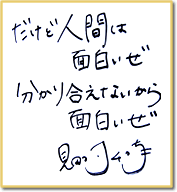 だけど人間は
面白いぜ
分かり合えないから
面白いぜ